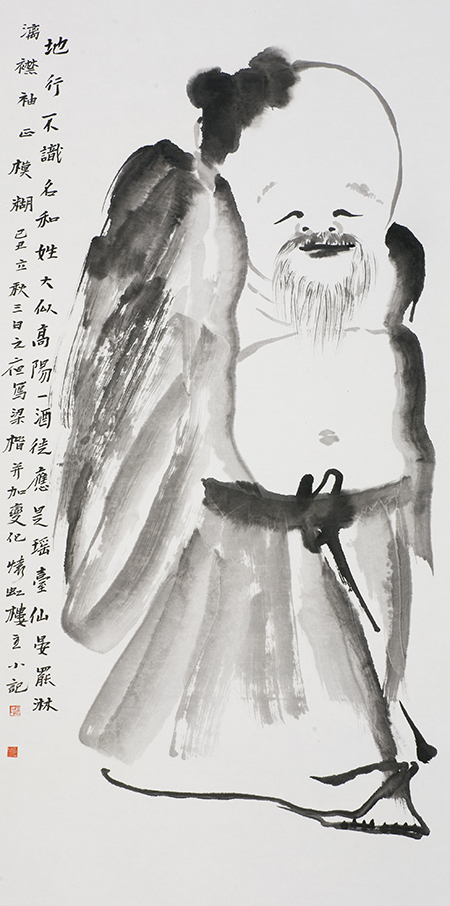 地行不識名和姓大似高陽一酒徒應是瑤臺仙晏罷淋
漓襟袖正模糊己丑立秋三日之夜寫梁楷并加變化虹樓主小記